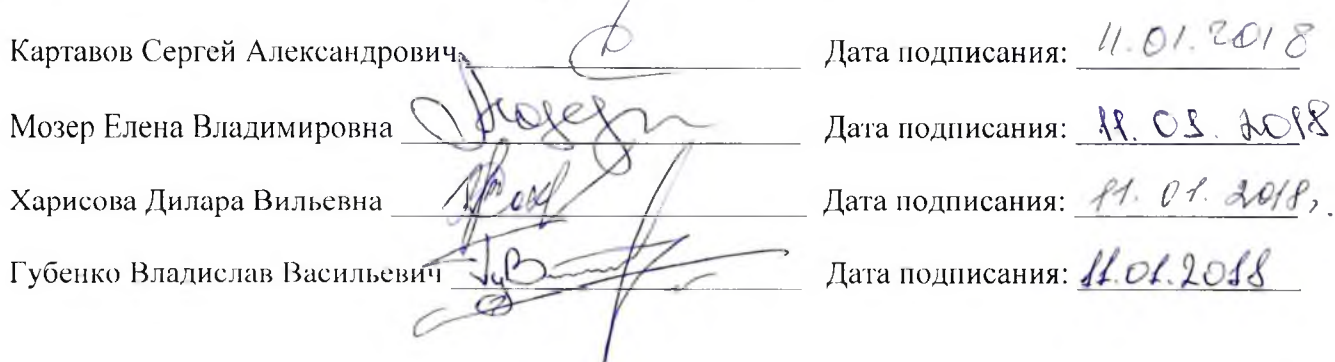 Картавов Сергей Александрович Дата подписания: 11.01.2018
Мозер Елена Владимировна Мозер Дата подписания: 11.01.2018
Харисова Дилара Вильевна Дата подписания: 11.01.2018,
Губенко Владислав Васильевич Дата подписания: 11.01.2018